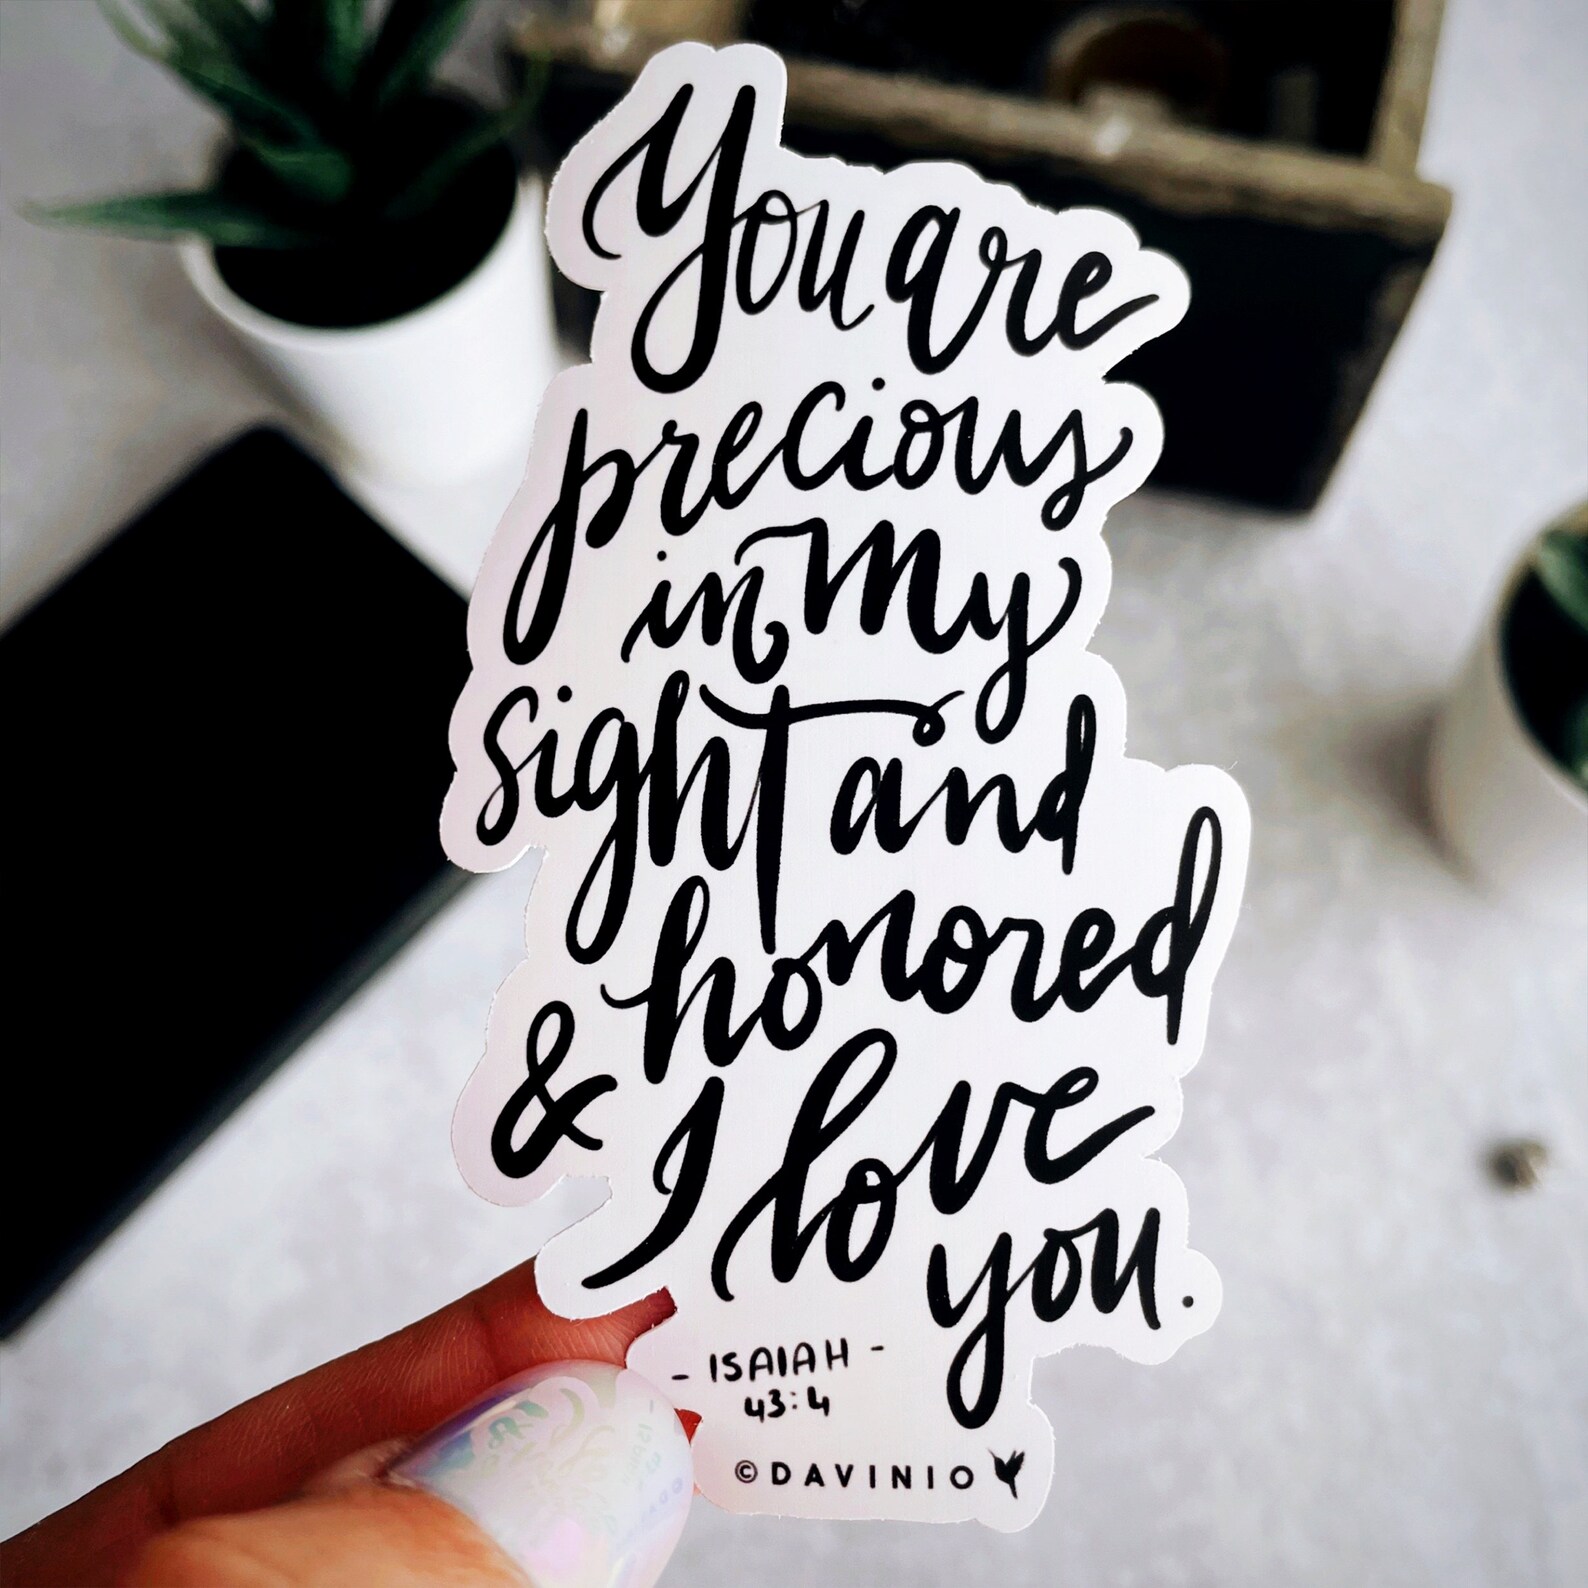 You are
precious
in My
sight and
honored
& I love
you.
- ISAIAH -
43:4
© DAVINIO